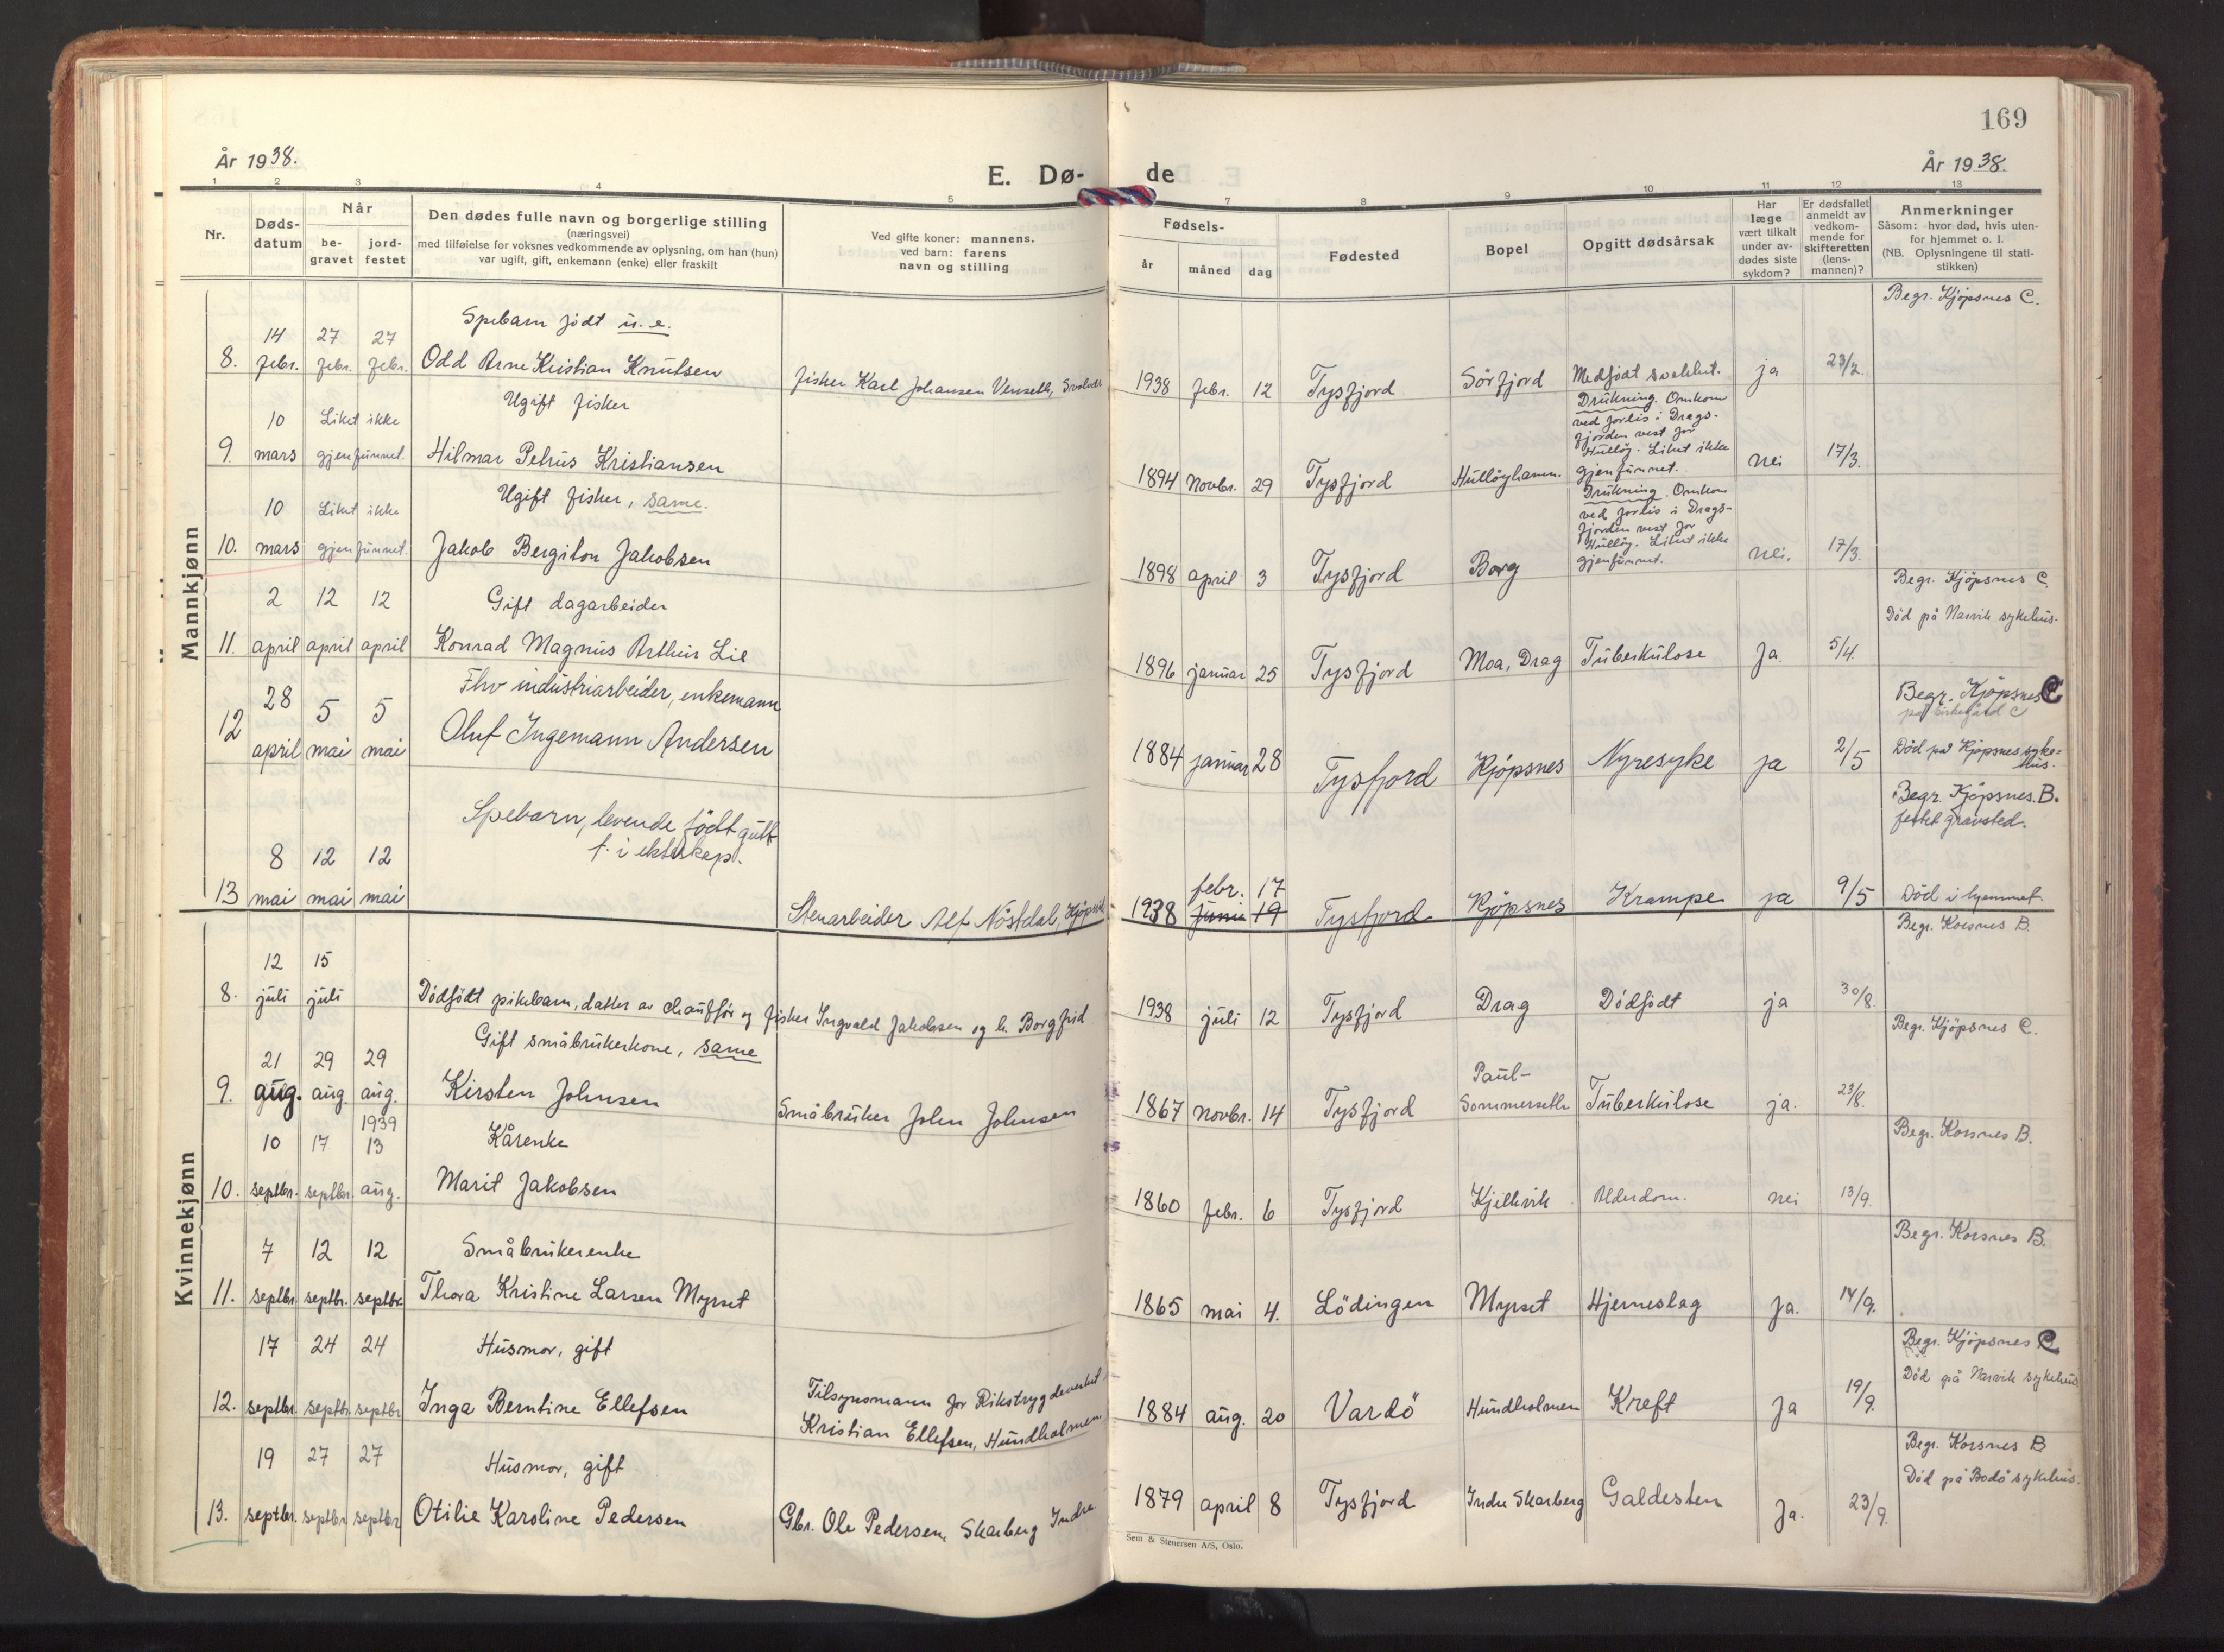 169
År 1938.
E. Dø-
de
År 1938.
1 2 3 4 5 7 8 9 10 11 12 13
Nr.
Døds-
datum
Når
be-
gravet
jord-
festet
Den dødes fulle navn og borgerlige stilling
(næringsvei)
med tilføielse for voksnes vedkommende av oplysning, om han (hun)
var ugift, gift, enkemann (enke) eller fraskilt
Ved gifte koner: mannens,
ved barn: farens
navn og stilling
Fødsels-
år måned dag
Fødested
Bopel
Opgitt dødsårsak
Har
læge
vært tilkalt
under av-
dødes siste
sykdom?
Er dødsfallet
anmeldt av
vedkom-
mende for
skifteretten
(lens-
mannen)?
Anmerkninger
Såsom: hvor død, hvis uten-
for hjemmet o. l.
(NB. Oplysningene til stati-
stikken)
Mannkjønn
Begr. Kjöpsnes C.
Spebarn födt u. e.
14 27 27
8. febr. febr. febr. Odd Arne Kristian Knutsen fisker Karl Johansen Venseth, 1938 febr. 12 Tysfjord Sörfjord Medfödt svakhet. ja 23/2.
Ugift fisker
10 Liket ikke
9. mars gjenfunnet. Hilmar Petrus Kristiansen 1894 novbr. 29 Tysfjord Hullöyhamn.
Drukning. Omkom
ved forlis i Drags-
fjorden vest for
Hullöy. Liket ikke
gjenfunnet.
nei 17/3.
Ugift fisker, same.
10 Liket ikke
10. mars gjenfunnet. Jakob Bergiton Jakobsen 1898 april 3 Tysfjord Borg
Drukning. Omkom
ved forlis i Drags-
fjorden vest for
Hullöy. Liket ikke
gjenfunnet.
nei. 17/3.
Begr. Kjöpsnes C.
Död på Narvik sykehus.
2 12 12 Gift dagarbeider
11. april april april Konrad Magnus Arthur Lie 1896 januar 25 Tysfjord Moa, Drag Tuberkulose Ja. 5/4.
Begr. Kjöpsnes C
på kirkegård C
28 5 5 Fhv industriarbeider, enkemann
12 april mai mai Oluf Ingemann Andersen 1884 januar 28 Tysfjord Kjöpsnes Nyresyke ja 2/5
Död på Kjöpsnes syke-
hus.
Begr. Kjöpsnes. B.
festet gravsted.
Spebarn, levende födt gutt
f. i ekteskap.
8 12 12
13 mai mai mai Stenarbeider Alf Nöstdal, 1938 febr. 17 junie 19 Tysfjord Kjöpsnes Krampe ja 9/5 Död i hjemmet.
Kvinnekjønn
Begr. Korsnes B.
12 15
8. juli juli Dödfödt pikebarn, datter av chauffør og fisker Ingvald Jakobsen og h. Borgfrid 1938 juli 12 Tysfjord Drag Dödfödt ja 30/8.
Begr. Kjöpsnes C.
Gift småbrukerkone, same
21 29 29
9. aug. aug. aug. Kirsten Johnsen Småbruker John Johnsen 1867 novbr. 14 Tysfjord Paul-
Sommerseth Tuberkulose ja. 23/8.
Begr. Korsnes B.
1939
10 17 13 Kårenke
10. septbr. septbr. aug. Marit Jakobsen 1860 febr. 6 Tysfjord Kjellvik Alderdom. nei 13/9.
Begr. Korsnes B.
7 12 12 Småbrukerenke
11. septbr. septbr. septbr. Thora Kristine Larsen Myrset 1865 mai 4. Lödingen Myrset Hjerneslag Ja. 14/9.
Begr. Kjöpsnes C
Död på Narvik sykehus
17 24 24 Husmor, gift
12. septbr. septbr. septbr Inga Berntine Ellefsen
Tilsynsmann for Rikstrygdeverket
Kristian Ellefsen, Hundholmen
1884 aug. 20 Vardö Hundholmen Kreft Ja 19/9.
Begr. Korsnes B
Död på Bodö sykehus.
19 27 27 Husmor, gift
13. septbr. septbr septbr Otilie Karoline Pedersen Gbr. Ole Pedersen, Skarberg Indre 1879 april 8 Tysfjord Indre Skarberg Galdesten Ja. 23/9.
Sem & Stenersen A/S, Oslo.